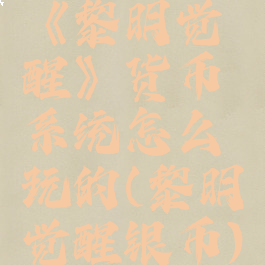 《黎明觉
醒》货币
系统怎么
玩的(黎明
觉醒银币)